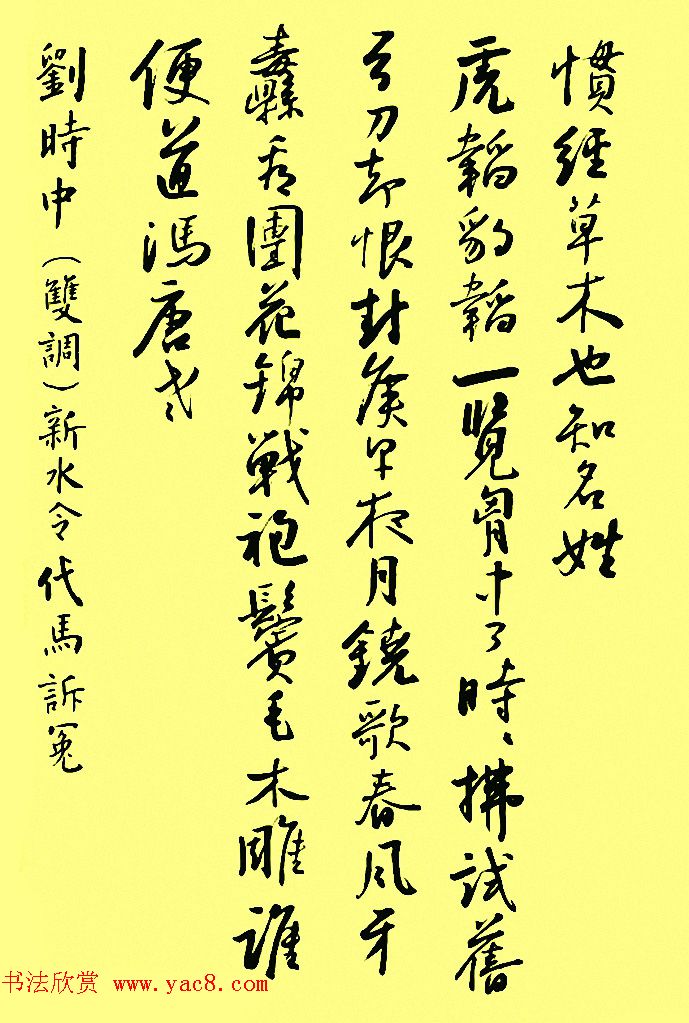 慣經草木也知名姓
虎韜豹韜一覽胷中了時〻拂試舊
弓刀却恨封侯早夜月鐃歌春風牙
纛看團花錦戰袍鬢毛木雕誰
便道馮唐老
劉時中（雙調）新水令代馬訴冤
书法欣赏 www.yac8.com